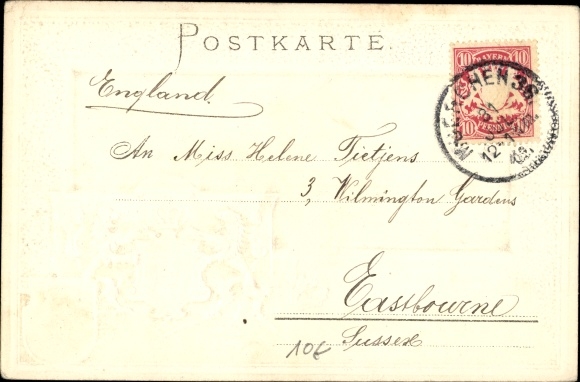 POSTKARTE
BAYERN
10 10
10 PFENNIG 10
MUENCHEN 36
12-1
03.
England.
An Miss Helene Tietjens
3, Wilmington Gardens
Eastbourne
Sussex
10€